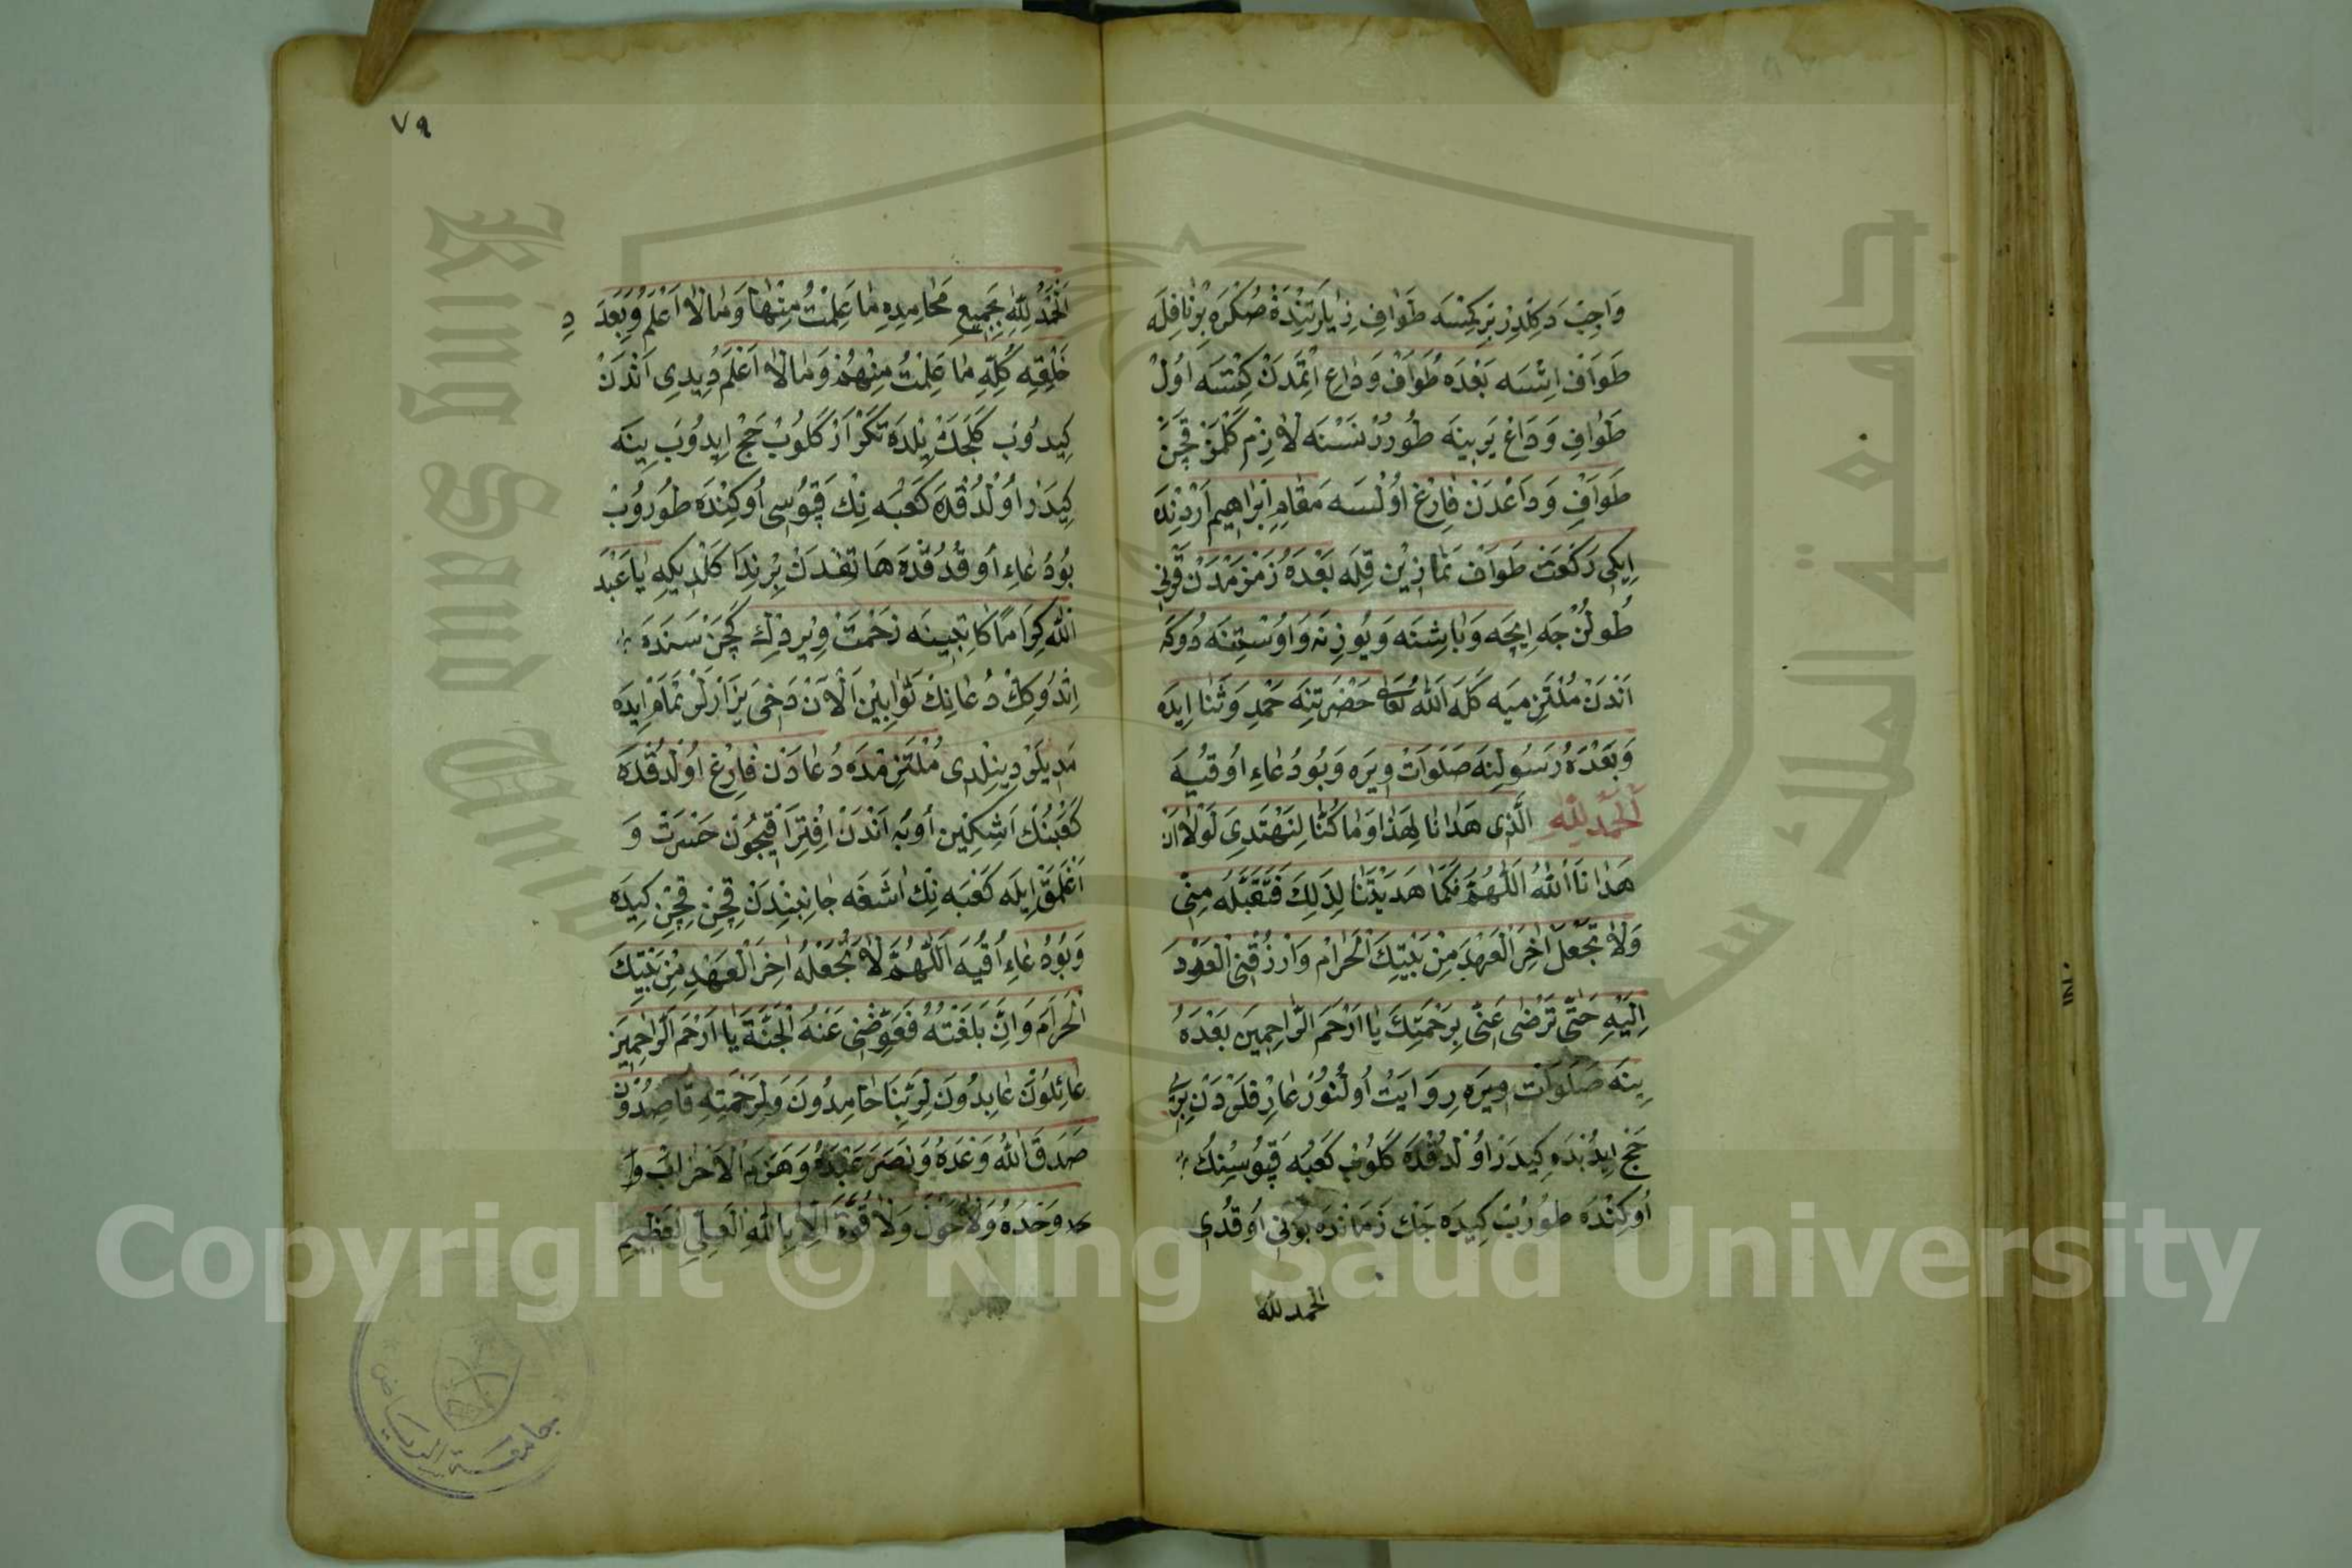 وَاجِبْ دَكِلْدِرْ بَرْ كِمْسَه طَوَافِ زِيَارَتِنْدَةْ صُكْرَه بَرْ نَافِلَه
طَوَافْ اِتْسَه بَعْدَه طَوَافْ وَدَاعِ اِتْمَدَنْ كِتْسَه اُولْ
طَوَافِ وَدَاعْ يَرِينَه طُورُرْ نَسْنَه لَازِمْ كَلْمَزْ قَچَنْ
طَوَافِ وَدَاعْدَنْ فَارِغْ اُولْسَه مَقَامِ اِبْرَاهِيم اَرْدِنْدَه
اِيكِى رَكْعَتْ طَوَافْ نَمَازِيْنِ قِلَه بَعْدَهُ زَمْزَمْدَنْ
طُولُنْجَه اِيچَه وَبَاشِنَه وَيُوزِنَه وَاوُسْتِنَه دُوكَه
اَنْدَنْ مُلْتَزِمَيَه كَلَه اَللهُ تَعَالَى حَضْرَتِنَه حَمْدِ وَثَنَا اِيدَه
وَبَعْدَهُ رَسُولِنَه صَلَوَاتْ وِيرَه وَبُو دُعَاءِ اُوقُيَه
اَلْحَمْدُ لِلّٰهِ الَّذِى هَدَانَا لِهَذَا وَمَا كُنَّا لِنَهْتَدِىَ لَوْلَا اَنْ
هَدَانَا اللهُ اَللّٰهُمَّ فَكَمَا هَدَيْتَنَا لِذَلِكَ فَتَقَبَّلْهُ مِنِّى
وَلَا تَجْعَلْ اٰخِرَ الْعَهْدِ مِنْ بَيْتِكَ الْحَرَامْ وَارْزُقْنِى الْعَوْدَ
اِلَيْهِ حَتَّى تَرْضَى عَنِّى بِرَحْمَتِكَ يَا اَرْحَمَ الرَّاحِمِينَ بَعْدَهُ
يِنَه صَلَوَاتْ وِيرَه رِوَايَتْ اُولُنُورْ عَارِفْلَرْدَنْ بِرِى
حَجْ اِيدُبْدَه كِيدَرْ اُولْدُقْدَه كَلُوبْ كَعْبَه قَپُوسِنُكْ
اُوكِنْدَه طُورُبْ كِيدَه جَكْ زَمَانْدَه بُونِى اُوقُدِى
الحمد لله
٧٩
اَلْحَمْدُ لِلّٰهِ بِجَمِيعِ مَحَامِدِهِ مَا عَلِمْتُ مِنْهَا وَمَا لَا اَعْلَمُ وَبِعَدَدِ
خَلْقِه كُلِّهِ مَا عَلِمْتُ مِنْهُمْ وَمَا لَا اَعْلَمُ دِيدِى اَنْدَنْ
كِيدُوبْ كَلَجَكْ يِلْدَه تَكْرَارْ كَلُوبْ حَجْ اِيدُوبَ يِنَه
كِيدَرْ اُولْدُقْدَه كَعْبَه نِكْ قَپُوسِى اُوكِنْدَه طُورُوبْ
بُو دُعَاءِ اُوقُدُقْدَه هَاتِفْدَنْ بِرْنِدَا كَلْدِيكِه يَا عَبْدَ
اللهْ كِرَامًا كَاتِبِينَه زَحْمَتْ وِيرْدِكْ كَچَنْ سَنَدَه
اِتْدُوكِكْ دُعَانِكْ ثَوَابِيْنِ اَلْاَنْ دَخِى يَزَارْلَرْ تَمَامْ اِيدَه
مَدِيلَرْ دِينِلْدِى مُلْتَزِمْدَه دُعَادَنْ فَارِغْ اُولْدُقْدَه
كَعْبَنُكْ اَشِكِيْن اُوپَه اَنْدَنْ اِفْتِرَاقِيچُونْ حَسْرَتْ وَ
اَغْلَمَقْ اِيلَه كَعْبَه نِكْ اَشَغَه جَانِبِنْدَنْ قِچِنْ قِچِنْ كِيدَه
وَبُو دُعَاءِ اُقُيَه اَللّٰهُمَّ لَا تَجْعَلْهُ اٰخِرَ الْعَهْدِ مِنْ بَيْتِكَ
الْحَرَامَ وَاِنْ بَلَغْتَهُ فَعَوِّضْنِى عَنْهُ الْجَنَّةَ يَا اَرْحَمَ الرَّاحِمِينَ
عَابِدُونَ لِرَبِّنَا حَامِدُونَ وَلِرَحْمَتِهِ قَاصِدُونَ
صَدَقَ اللهُ وَعْدَهُ وَنَصَرَ عَبْدَهُ وَهَزَمَ الْاَحْزَابَ
وَحْدَهُ وَلَا حَوْلَ وَلَا قُوَّةَ اِلَّا بِاللهِ الْعَلِىِّ الْعَظِيمِ
جامعة الرياض
King Saud University
جامعة الملك سعود
Copyright © King Saud University